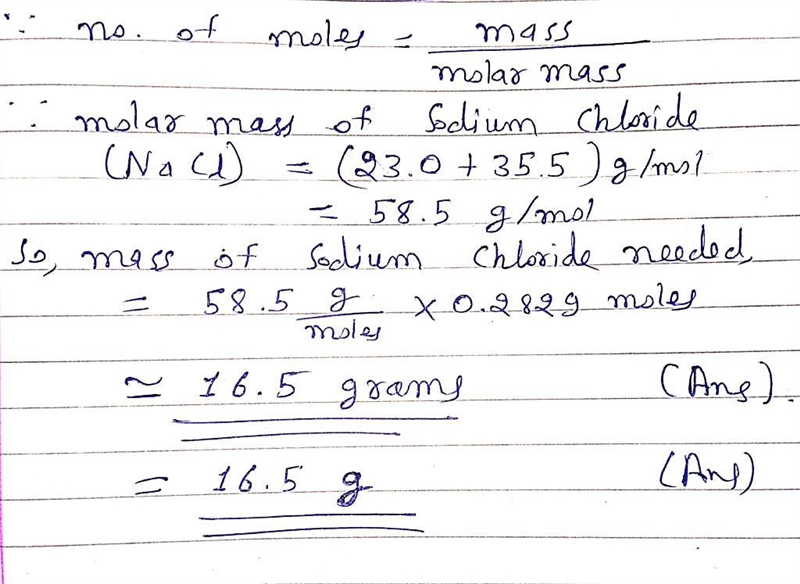 ∵ no. of moles = mass / molar mass
∵ molar mass of Sodium Chloride
(NaCl) = (23.0 + 35.5) g/mol
= 58.5 g/mol
So, mass of Sodium Chloride needed,
= 58.5 g/moles × 0.2829 moles
≃ 16.5 grams (Ans).
= 16.5 g (Ans)